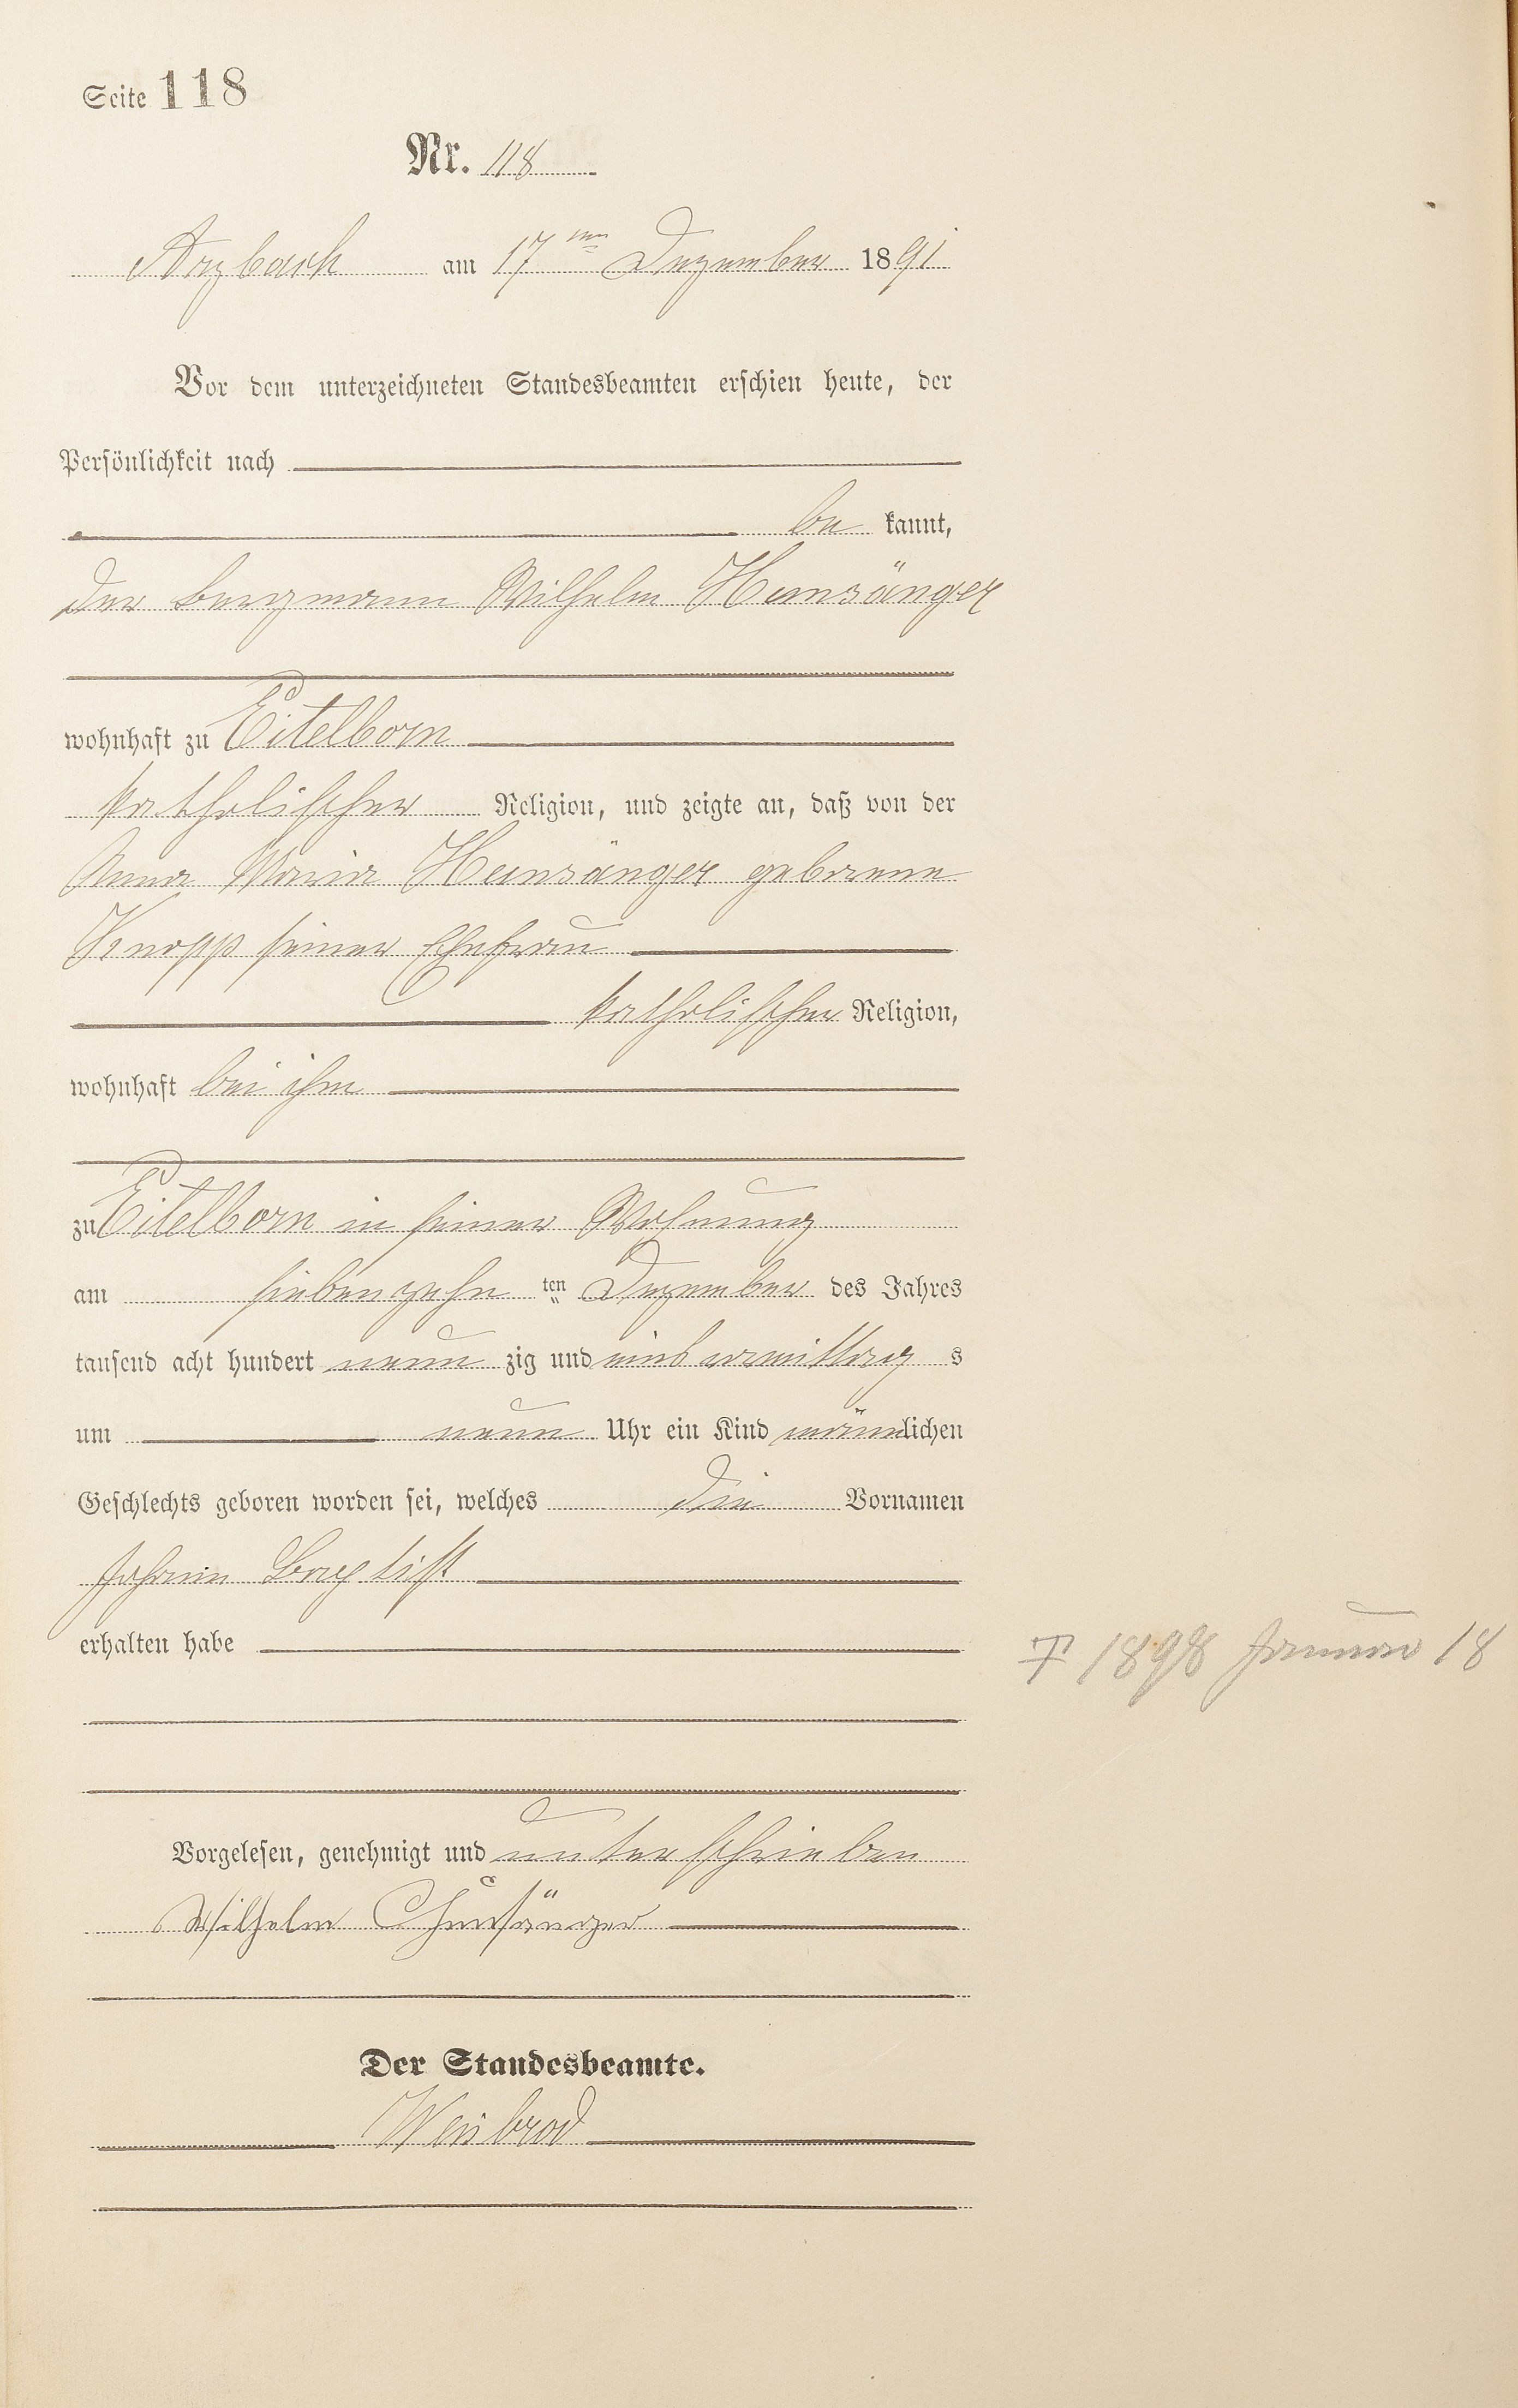 Seite 118
Nr. 118
Arzbach am 17ten Dezember 1891
Vor dem unterzeichneten Standesbeamten erschien heute, der
Persönlichkeit nach
be kannt,
der Bergmann Wilhelm Hunsänger
wohnhaft zu Eitelborn
katholischer Religion, und zeigte an, daß von der
Anna Maria Hunsänger geborene
Knopp seiner Ehefrau
katholischer Religion,
wohnhaft bei ihm
zu Eitelborn in seiner Wohnung
am siebenzehn ten Dezember des Jahres
tausend acht hundert neun zig und eins vormittag s
um neun Uhr ein Kind männlichen
Geschlechts geboren worden sei, welches die Vornamen
Johann Baptist
erhalten habe
† 1898 Januar 18
Vorgelesen, genehmigt und unterschrieben
Wilhelm Hunsänger
Der Standesbeamte.
Weisbrod